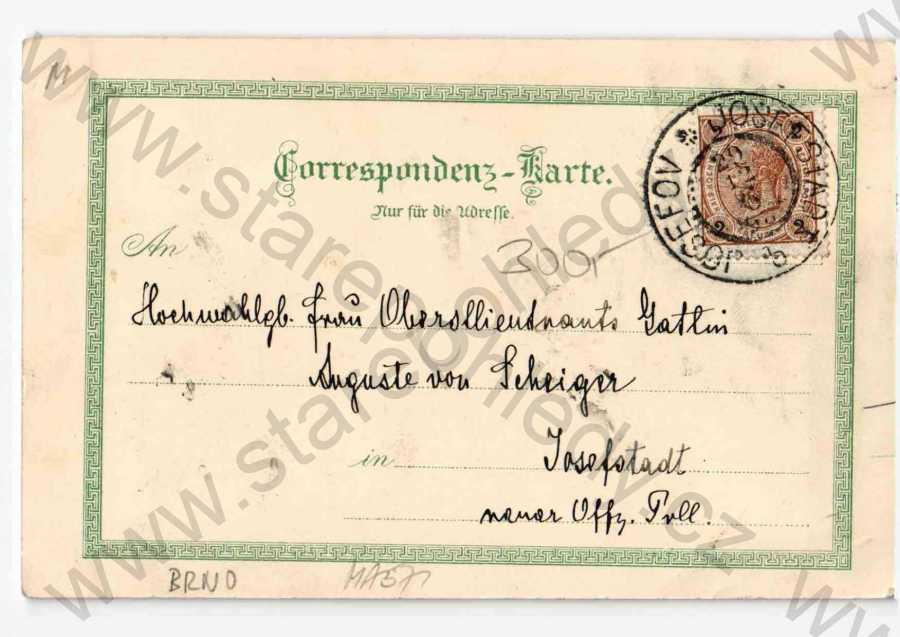 M
Correspondenz-Karte.
Nur für die Adresse.
JOSEFSTADT
JOSEFOV
2 2
An
300,-
Hochwohlgb. Frau Oberstlieutnants Gattin
Auguste von Scheiger
in Josefstadt
neuer Offz. Pvll.
BRNO
www.starepohledy.cz